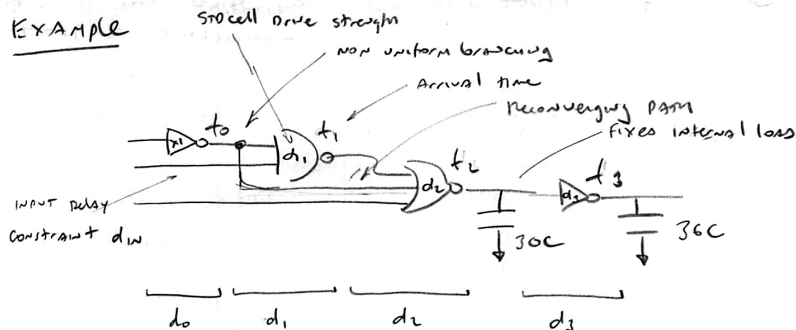 EXAMPLE
STD cell Drive strength
NON UNIFORM branching
Arrival time
Reconverging PATH
Fixed internal load
x1
t0
d1
t1
d2
t2
d3
t3
30C
36C
INPUT Delay
CONSTRAINT dIN
d0
d1
d2
d3